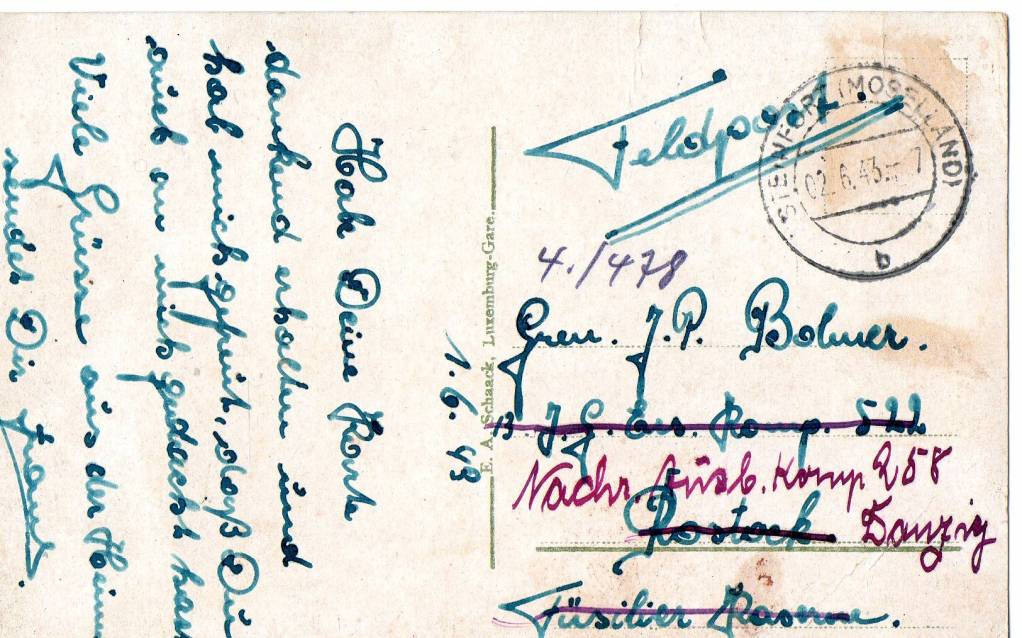 Hab Deine Karte
dankend erhalten und
hab mich gefreut, daß Du
mich gedacht
Viele Grüsse aus der Heim
sendet Dir
1. 6. 43
E. A. Schaack, Luxemburg-Gare.
Feldpost.
STEINFORT (MOSELLAND)
02.6.43.-7
a
4./478
Gren. J. P. Bolmer.
13. J. G. Ers. Komp. 522
Nachr. Ausb. Komp 258
Rostock Danzig
Füsilier Kaserne.